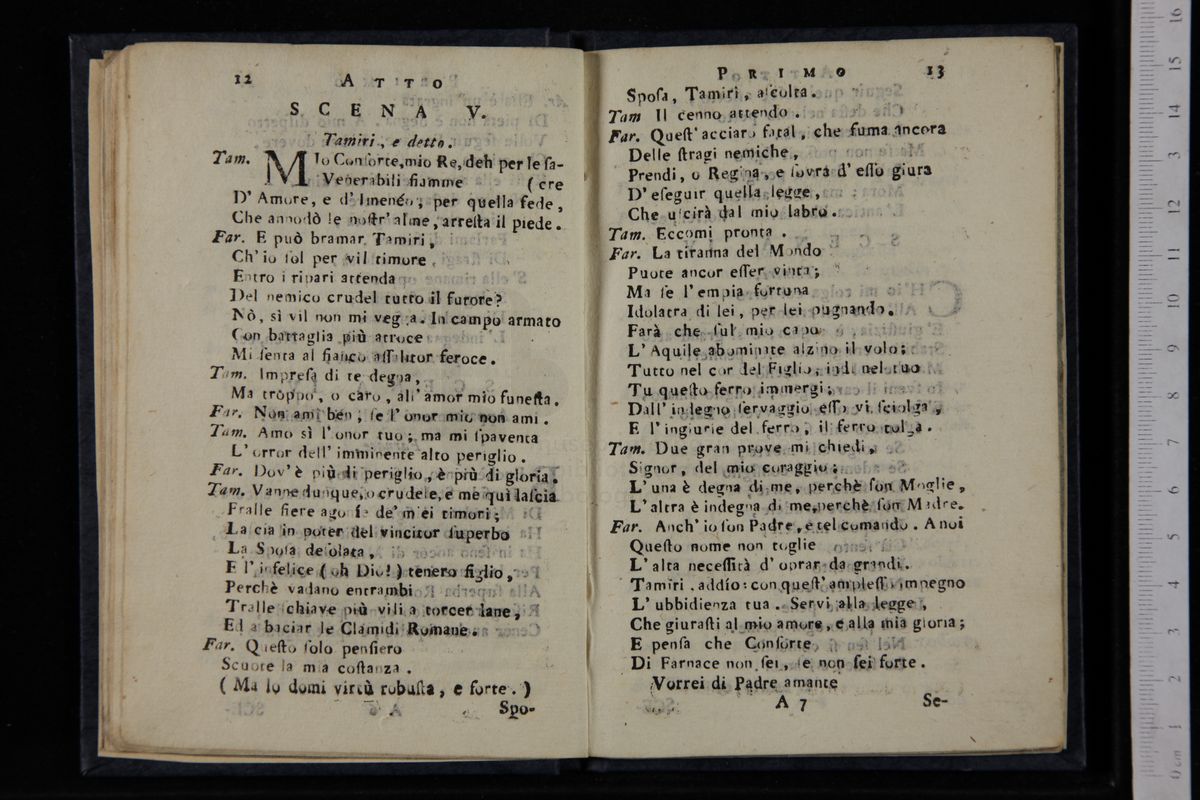 12 ATTO
SCENA V.
Tamiri, e detto.
Tam. MIo Consorte, mio Re, deh per le sa-
Venerabili fiamme (cre
D' Amore, e d' Imenéo; per quella fede,
Che annodò le nostr' alme, arresta il piede.
Far. E può bramar Tamiri,
Ch' io sol per vil timore
Entro i ripari attenda
Del nemico crudel tutto il furore?
Nò, sì vil non mi vegga. In campo armato
Con battaglia più atroce
Mi senta al fianco assalitor feroce.
Tam. Impresa di te degna,
Ma troppo, o caro, all' amor mio funesta.
Far. Non ami ben, se l' onor mio non ami.
Tam. Amo sì l' onor tuo; ma mi spaventa
L' orror dell' imminente alto periglio.
Far. Dov' è più di periglio, è più di gloria.
Tam. Vanne dunque, o crudele, e me quì lascia
Fralle fiere agonie de' miei timori;
Lascia in poter del vincitor superbo
La Sposa desolata,
E l' infelice (oh Dio!) tenero figlio,
Perchè vadano entrambi
Tralle schiave più vili a torcer lane,
Ed a baciar le Clamidi Romane.
Far. Questo solo pensiero
Scuote la mia costanza.
(Ma lo domi virtù robusta, e forte.)
Spo-
PRIMO 13
Sposa, Tamiri, ascolta.
Tam Il cenno attendo.
Far. Quest' acciaro fatal, che fuma ancora
Delle stragi nemiche,
Prendi, o Regina, e sovra d' esso giura
D' eseguir quella legge,
Che uscirà dal mio labro.
Tam. Eccomi pronta.
Far. La tiranna del Mondo
Puote ancor esser vinta;
Ma se l' empia fortuna
Idolatra di lei, per lei pugnando,
Farà che sul mio capo
L' Aquile abominate alzino il volo;
Tutto nel cor del Figlio, indi nel tuo
Tu questo ferro immergi;
Dall' indegno servaggio esso vi sciolga,
E l' ingiurie del ferro, il ferro tolga.
Tam. Due gran prove mi chiedi,
Signor, del mio coraggio:
L' una è degna di me, perchè son Moglie,
L' altra è indegna di me, perchè son Madre.
Far. Anch' io son Padre, e tel comando. A noi
Questo nome non toglie
L' alta necessità d' oprar da grandi.
Tamiri, addío: con quest' amplesso impegno
L' ubbidienza tua. Servi alla legge,
Che giurasti al mio amore, e alla mia gloria;
E pensa che Consorte
Di Farnace non sei, se non sei forte.
Vorrei di Padre amante
A 7 Se-